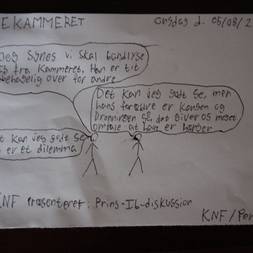 EKAMMERET
onsdag d. 05/08/2
Jeg synes vi skal bandlyse
fra kammeret. Han er tit
ubehagelig over for andre
Det kan jeg godt se, men
hans forældre er kongen og
dronningen så det giver os mere
omtale at han er
t kan jeg godt se
er et dilemma
KNF Præsenteret: Prins-Ib-diskussion
KNF/